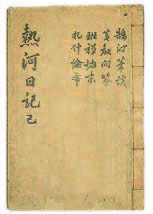 鵠汀筆談
黃教問答
班禪始末
札什倫布
熱河日記 己